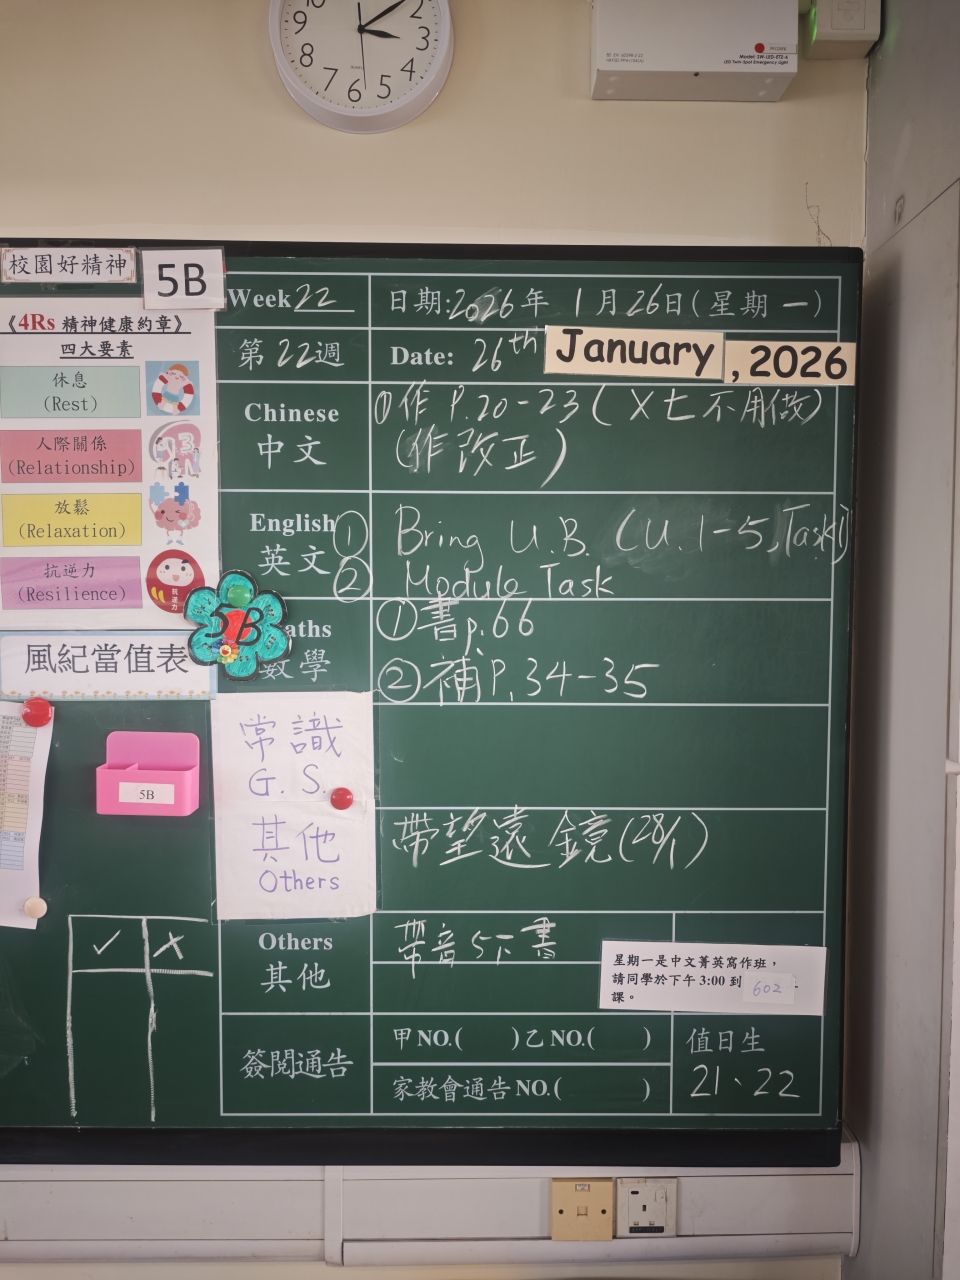 10
2
9
3
8
4
7
6
5
Model: SW-LED-ETZ-6
LED Twin Spot Emergency Light
校園好精神
5B
《4Rs 精神健康約章》
四大要素
休息
(Rest)
人際關係
(Relationship)
放鬆
(Relaxation)
抗逆力
(Resilience)
風紀當值表
5B
5B
Week 22
日期:2026年 1月26日(星期一)
第22週
Date: 26th January, 2026
Chinese
中文
①作 P.20-23 ( X七不用做)
(作改正)
English
英文
① Bring U.B. (U.1-5, Task1)
② Module Task
aths
數學
①書p.66
②補P.34-35
常識
G. S.
其他
Others
帶望遠鏡(28/1)
Others
其他
帶音5下書
星期一是中文菁英寫作班，
請同學於下午 3:00 到 602
課。
簽閱通告
甲 NO.( )乙 NO.( )
家教會通告 NO.( )
值日生
21、22
✓ X